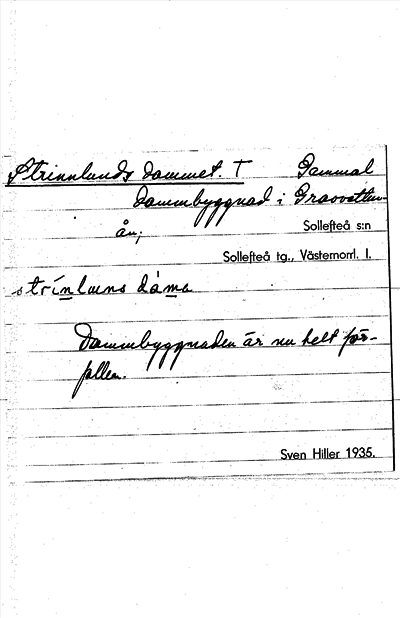 Strinnlunds dammet. T Gammal
dammbyggnad i Graovattun-
ån;
Sollefteå s:n
Sollefteå tg., Västernorrl. l.
strínluns dáma
Dammbyggnaden är nu helt för-
fallen.
Sven Hiller 1935.